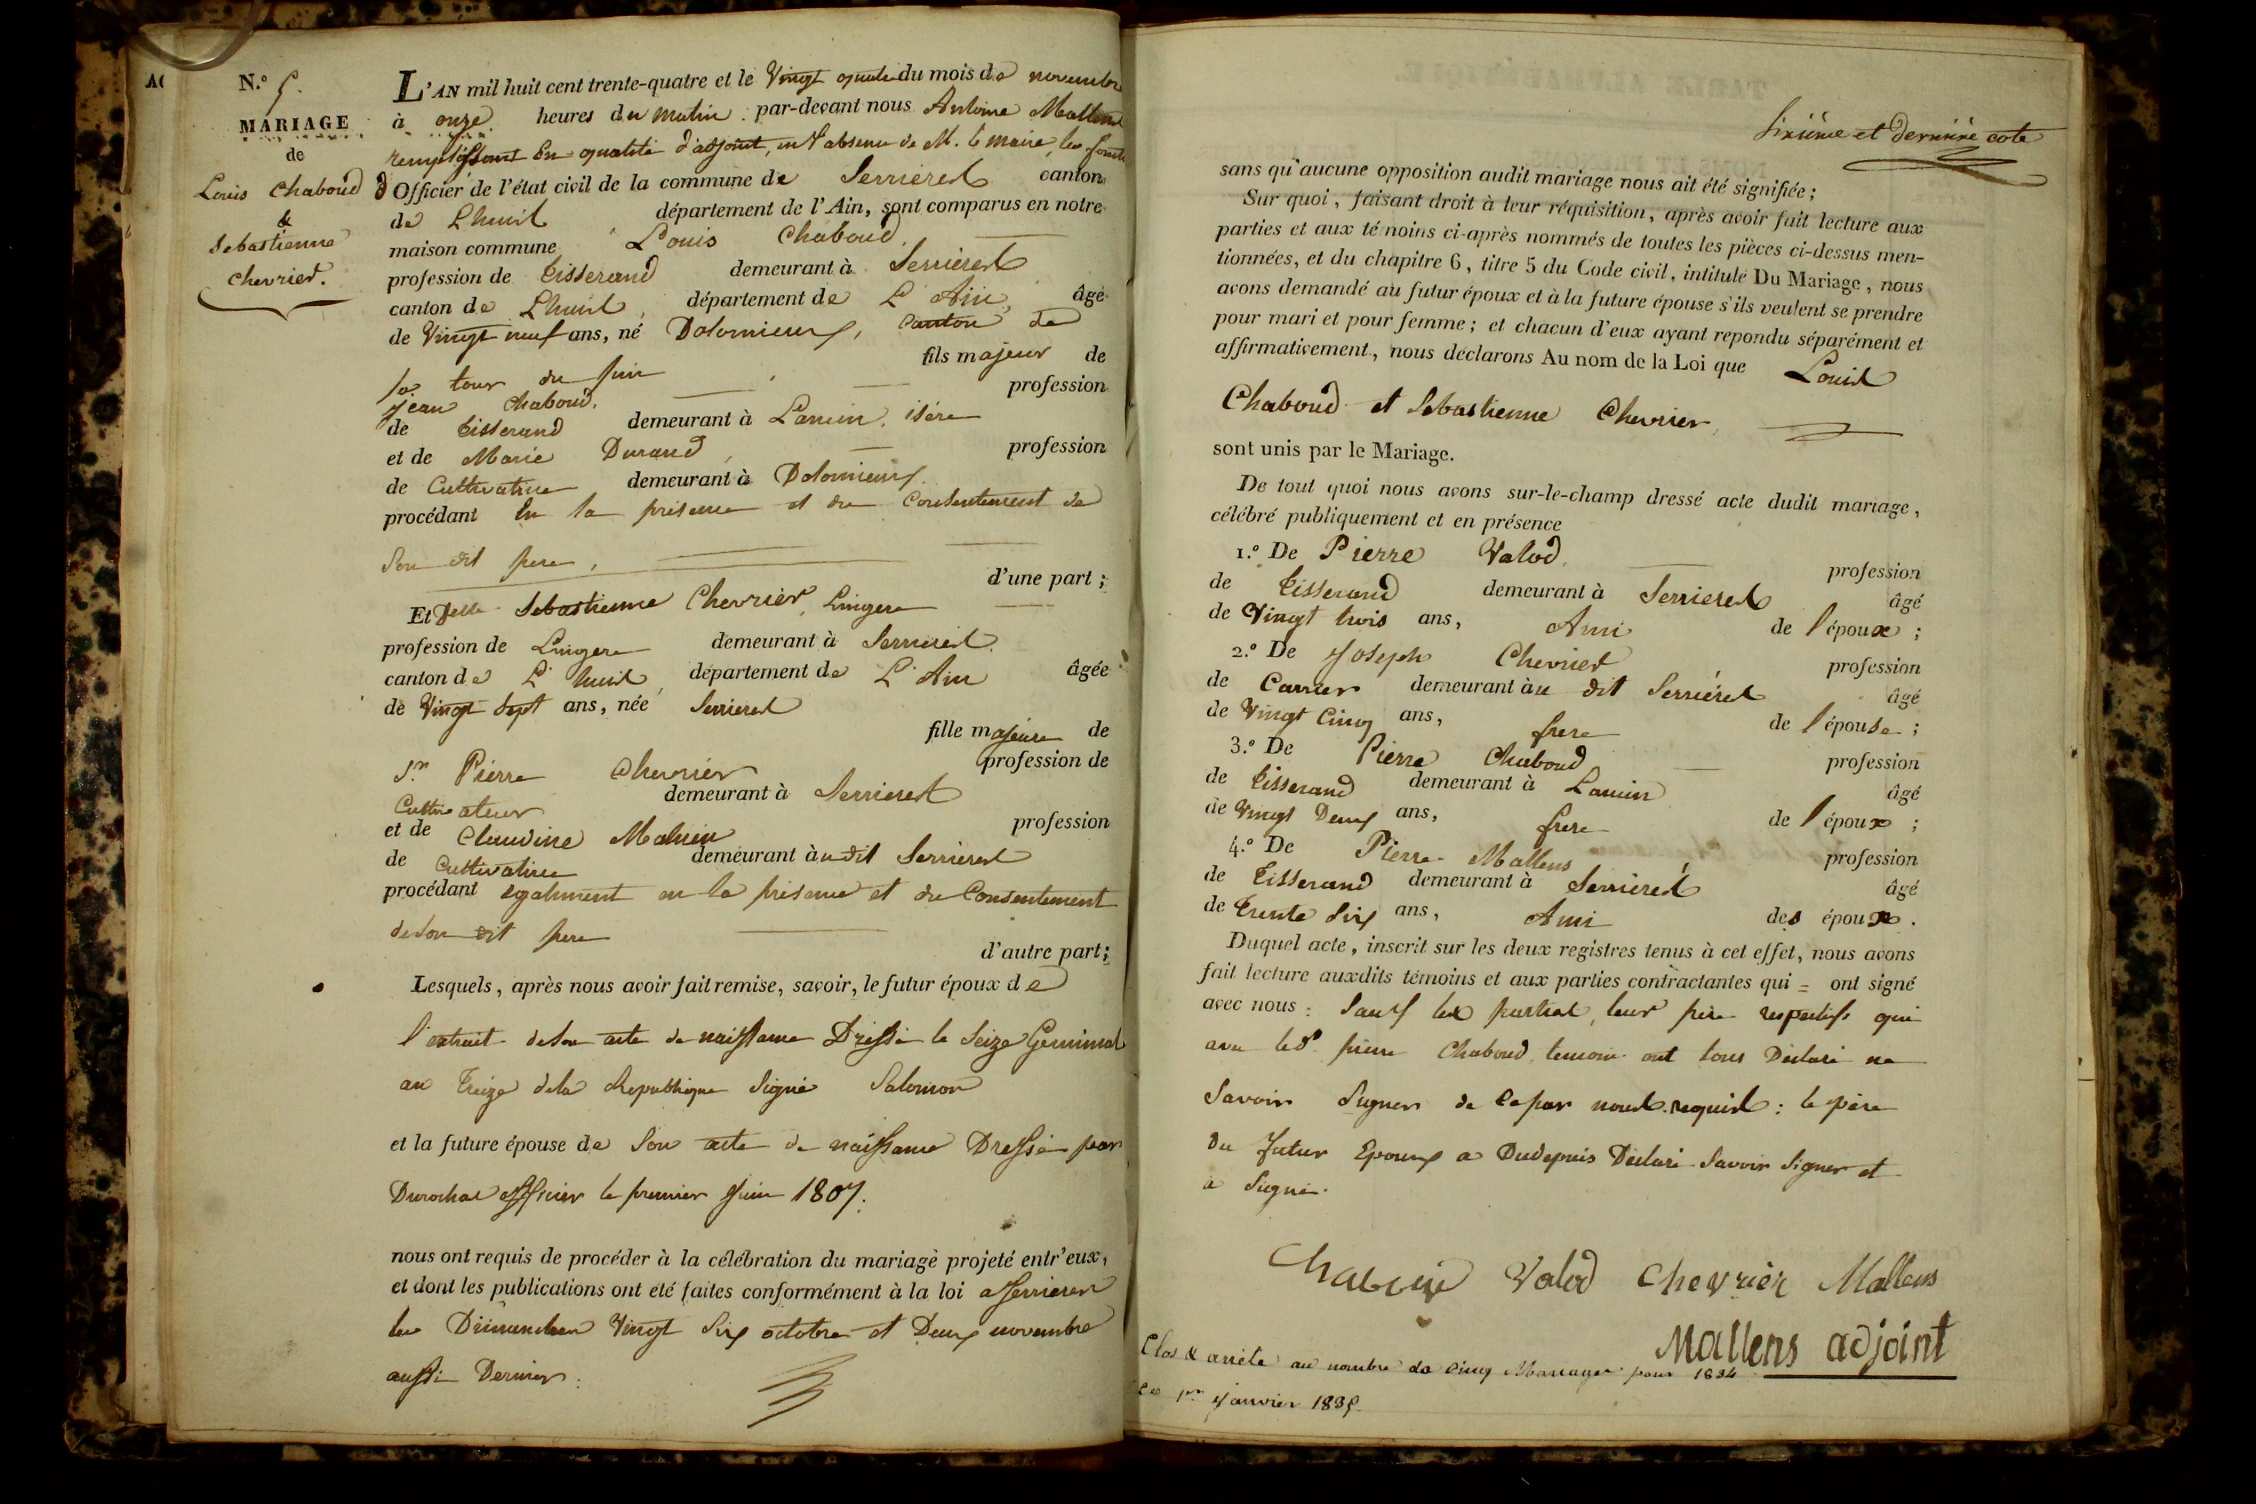 N.º 5.
MARIAGE
de
Louis Chaboud
&
Sebastienne
Chevrier.
L'AN mil huit cent trente-quatre et le Vingt quatre du mois de novembre
à onze heures du matin par-devant nous Antoine Mallens
remplissant En qualité d'adjoint, en l'absence de M. le maire, les fonct
d Officier de l'état civil de la commune de Serrieres canton
de Lhuis département de l'Ain, sont comparus en notre
maison commune Louis Chaboud,
profession de tisserand demeurant à Serrieres
canton de Lhuis, département de L'Ain, âgé
de Vingt neuf ans, né Dolomieux, canton de
la tour du pin fils majeur de
Jean Chaboud, profession
de tisserand demeurant à isére
et de Marie Durand, profession
de Cultivatrice demeurant à Dolomieux
procédant En la presence et du Consentement de
Son dit pere,
d'une part;
Et Delle Sebastienne Chevrier, Lingere
profession de Lingere demeurant à Serrieres.
canton de L'huis, département de L'Ain âgée
de Vingt Sept ans, née Serrieres
fille majeure de
Sr. Pierre Chevrier profession de
Cultivateur demeurant à Serrieres
et de Claudine profession
de Cultivatrice demeurant àudit Serrieres
procédant egalement en la presence et du Consentement
de Son dit pere
d'autre part;
Lesquels, après nous avoir fait remise, savoir, le futur époux de
l'extrait de Son acte de naissance Dressé le Seize Germinal
an treize de la Republique Signé Salomon
et la future épouse de Son acte de naissance Dressé par
officier le premier Juin 1807.
nous ont requis de procéder à la célébration du mariage projeté entr'eux,
et dont les publications ont été faites conformément à la loi a Serrieres
les Dimanches Vingt Six octobre et Deux novembre
aussi Dernier.
AC
Sixiéme et derniére cote
sans qu'aucune opposition audit mariage nous ait été signifiée;
Sur quoi, faisant droit à leur réquisition, après avoir fait lecture aux
parties et aux témoins ci-après nommés de toutes les pièces ci-dessus men-
tionnées, et du chapitre 6, titre 5 du Code civil, intitulé Du Mariage, nous
avons demandé au futur époux et à la future épouse s'ils veulent se prendre
pour mari et pour femme; et chacun d'eux ayant repondu séparément et
affirmativement, nous déclarons Au nom de la Loi que Louis
Chaboud et Sebastienne Chevrier,
sont unis par le Mariage.
De tout quoi nous avons sur-le-champ dressé acte dudit mariage,
célébré publiquement et en présence
1.º De Pierre Valod profession
de tisserand demeurant à Serrieres âgé
de Vingt trois ans, Ami de l'époux;
2.º De Joseph Chevrier profession
de Carrier demeurant àu dit Serriéres âgé
de Vingt Cinq ans, frere de l'épouse;
3.º De Pierre Chaboud profession
de tisserand demeurant à âgé
de Vingt Deux ans, frere de l'époux;
4.º De Pierre Mallens profession
de tisserand demeurant à Serriéres âgé
de trente Six ans, Ami des époux.
Duquel acte, inscrit sur les deux registres tenus à cet effet, nous avons
fait lecture auxdits témoins et aux parties contractantes qui = ont signé
avec nous: Sauf les parties, leur pére respectifs qui
avec le Sr. pierre Chaboud, temoin ont tous Déclaré ne
Savoir Signer de Ce par nous requis: le pére
du futur Epoux a Dudepuis Déclaré Savoir Signer et
a Signé.
Valod Chevrier Mallens
Mallens adjoint
Clos & arrété au nombre de Cinq Mariages pour 1834
Le 1er Janvier 1835